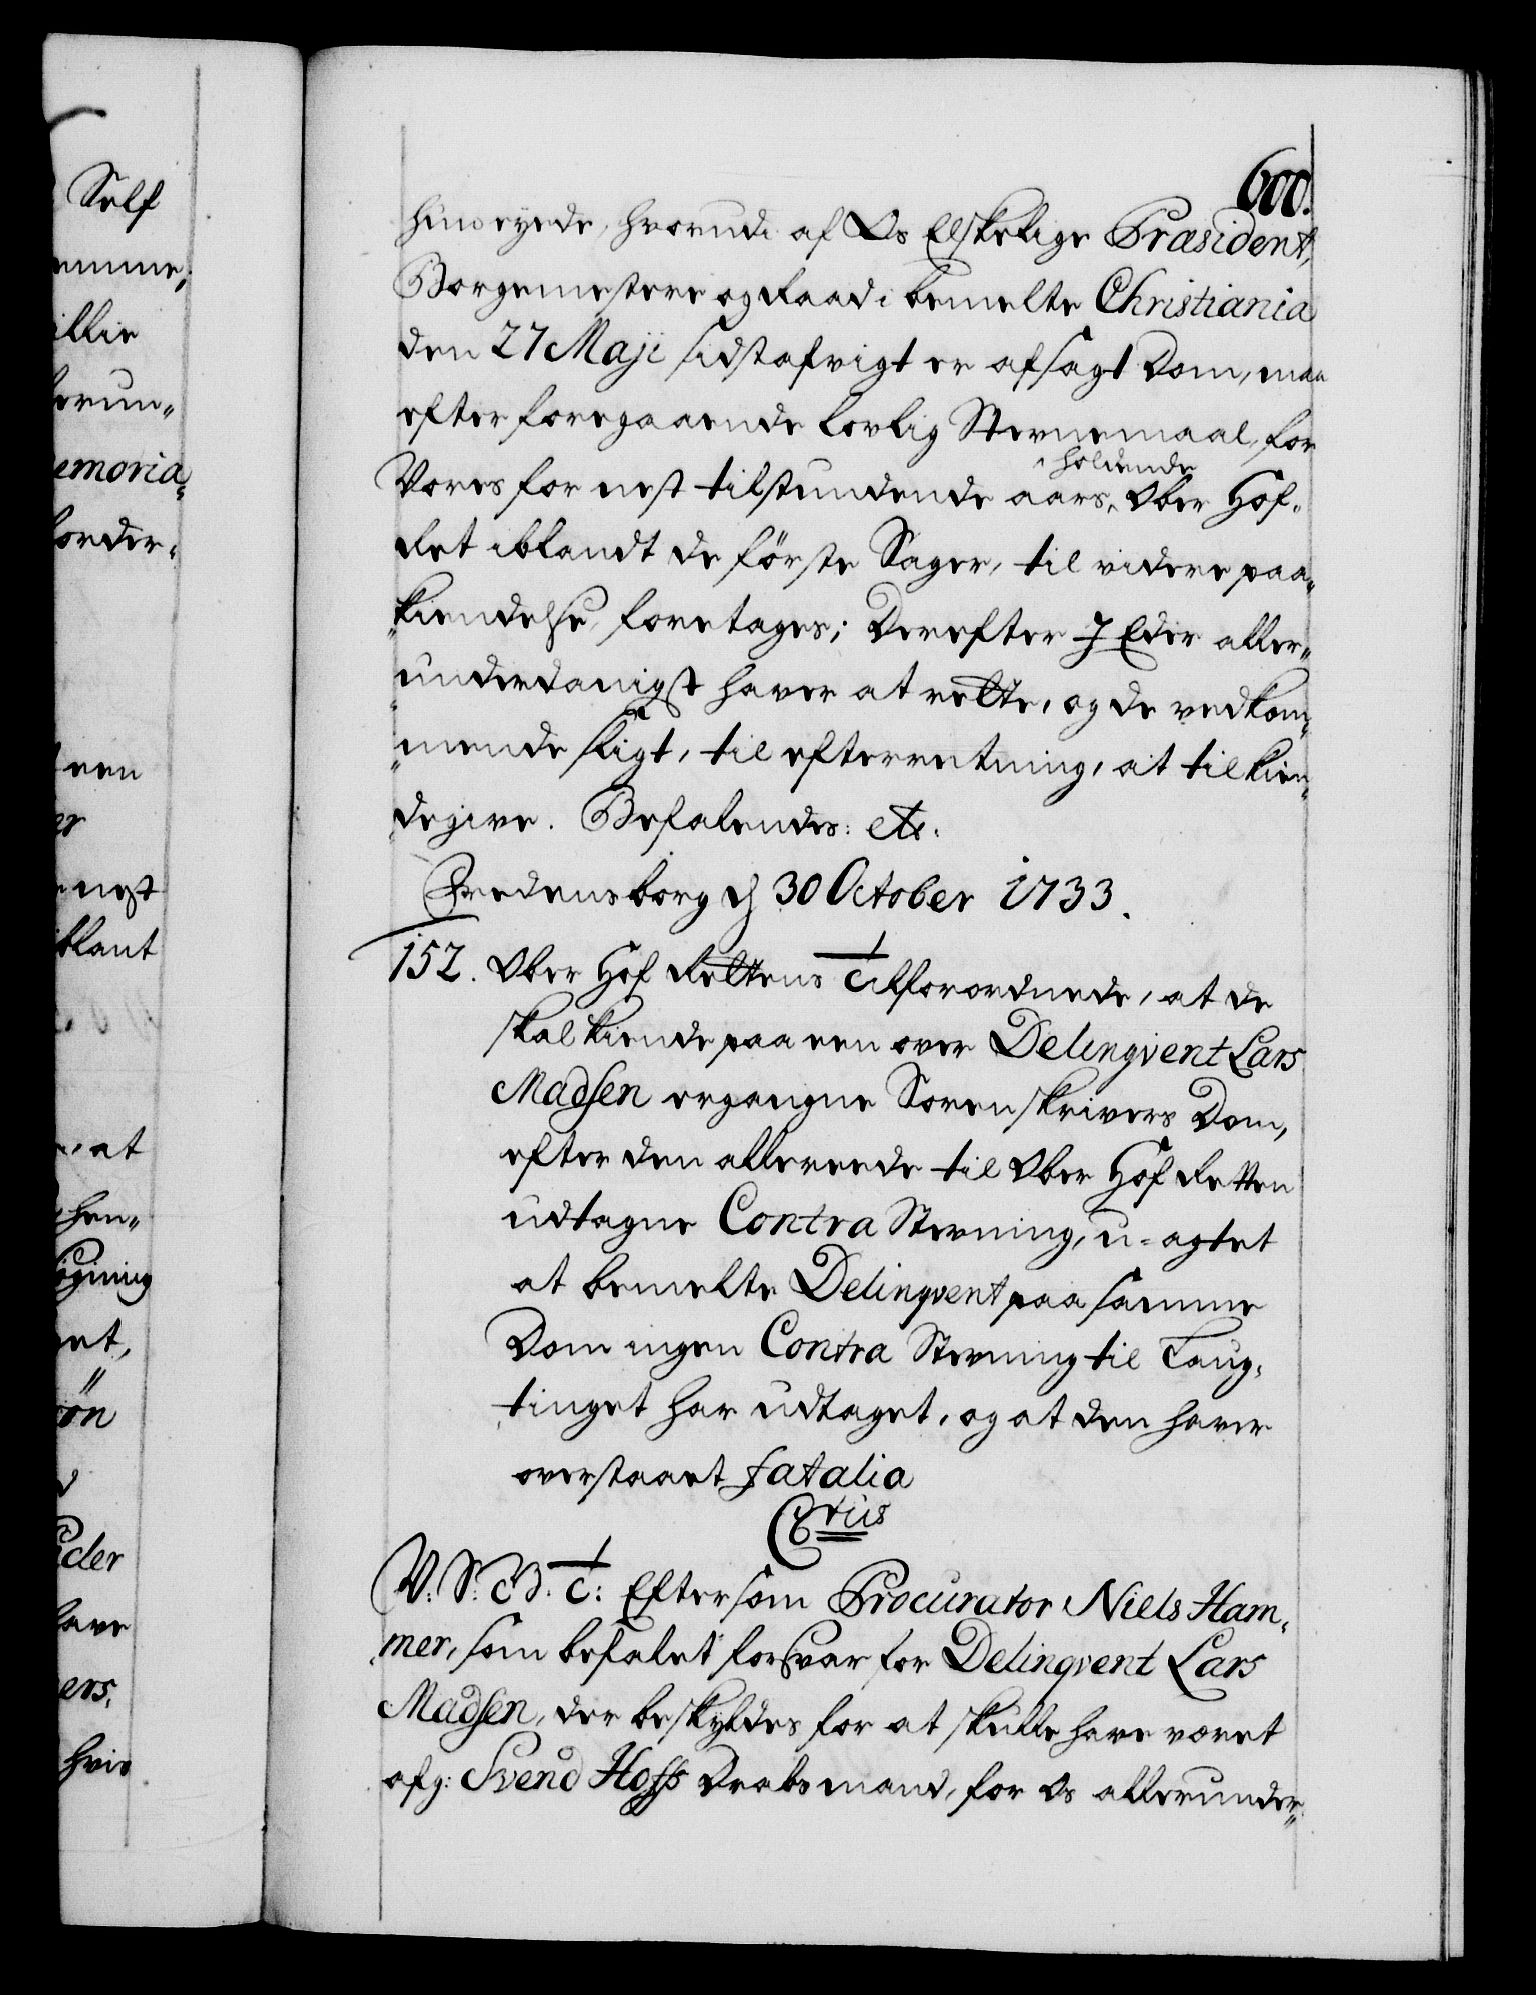 600.
hinereyede, hvorudi af Os Elskelige Præsident,
Borgemestere og Raad i bemelte Christiania
den 27 Maji sidstafvigt er afsagt Dom, maa
efter foregaaende lovlig Stevnemaal, for
holdende
Vores for nest tilstundende aars, Ober Hof-
Ret iblandt de förste Sager, til videre paa-
kiendelse, foretages; Derefter J Eder aller-
underdanigst haver at rette, og de vedkom-
mende sligt, til efterretning, at tilkien-
degive. Befalendes: etc.
Fredensborg d 30 October 1733.
152. Ober Hof Rettens Tilforordnede, at de
skal kiende paa een over Delinqvent Lars
Madsen ergangne Sorenskrivers Dom,
efter den allereede til Ober Hof Retten
udtagne Contra Stevning, u-agtet
at bemelte Delinqvent paa samme
Dom ingen Contra Stevning til Laug-
tinget har udtaget, og at den haver
overstaaet fatalia
C6tus
V: S: G. B. T: Eftersom Procurator Niels Ham-
mer, som befalet forsvar for Delinqvent Lars
Madsen, der beskyldes for at skulle have været
afg: Svend Hoffs Drabsmand, for Os allerunder-
Self
emme,
illie
erun-
emoria-
order-
een
er
nest
blant
at
hen-
igning
et,
ön
d
ider
have
ers,
hvis